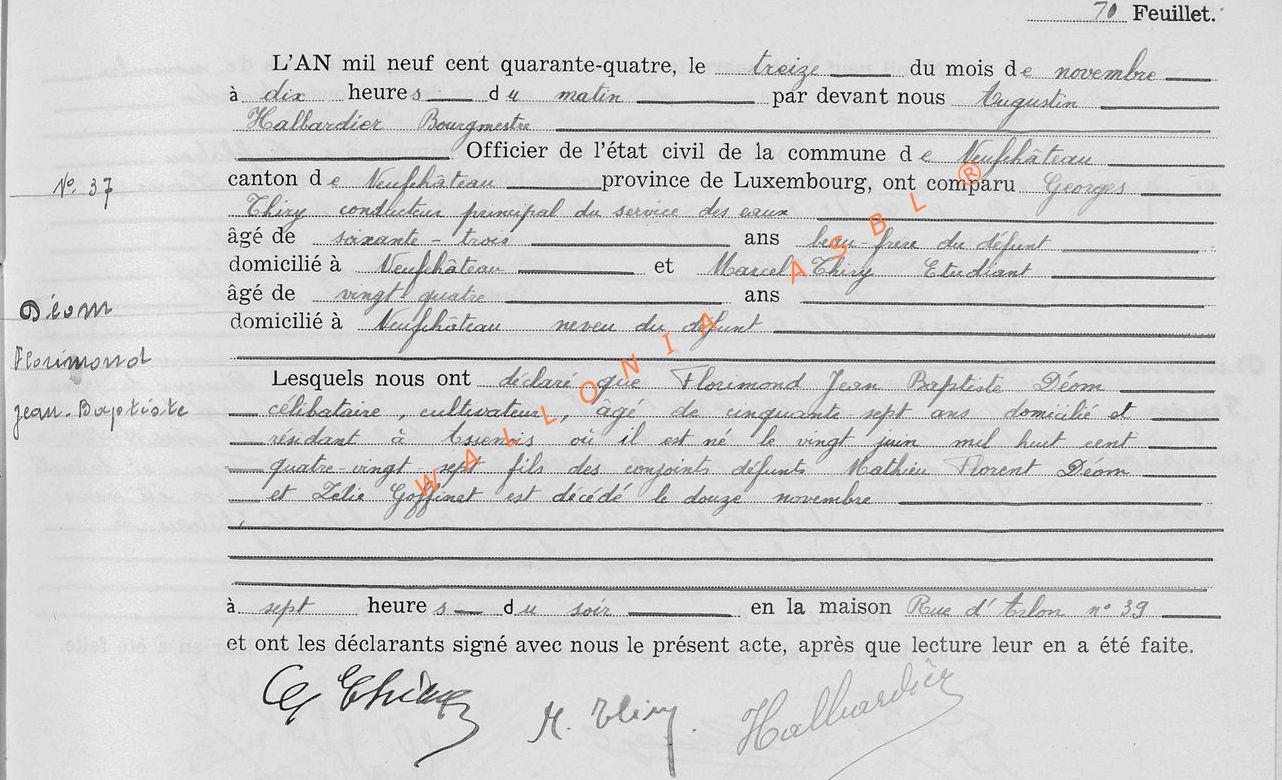 70 Feuillet.
L'AN mil neuf cent quarante-quatre, le treize du mois de novembre
à dix heures du matin par devant nous Augustin
Halbardier Bourgmestre
Officier de l'état civil de la commune de Neufchâteau
N° 37
canton de Neufchâteau province de Luxembourg, ont comparu Georges
Thiry conducteur principal du service des eaux
âgé de soixante-trois ans beau-frère du défunt
domicilié à Neufchâteau et Marcel Thiry Etudiant
âgé de vingt quatre ans
Déom
domicilié à Neufchâteau neveu du défunt
Florimond
Lesquels nous ont déclaré que Florimond Jean Baptiste Déom
Jean-Baptiste
célibataire, cultivateur, âgé de cinquante sept ans domicilié et
résidant à Assenois où il est né le vingt juin mil huit cent
quatre-vingt-sept fils des conjoints défunts Mathieu Florent Déom
et Zélie Goffinet est décédé le douze novembre
à sept heures du soir en la maison Rue d'Arlon n° 39
et ont les déclarants signé avec nous le présent acte, après que lecture leur en a été faite.
G Thiry M. Thiry Halbardier
WALLONIA ASBL ®